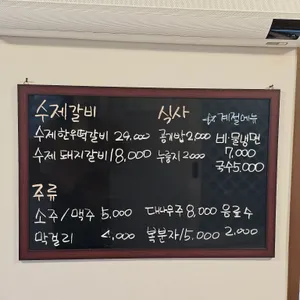 수제갈비
수제한우떡갈비 29,000
수제 돼지갈비 18,000
식사
공기밥 2,000
누룽지 2,000
계절메뉴
비·물냉면
7,000
국수 5,000
주류
소주/맥주 5,000
막걸리 4,000
대나무주 8,000
복분자 15,000
음료수
2,000